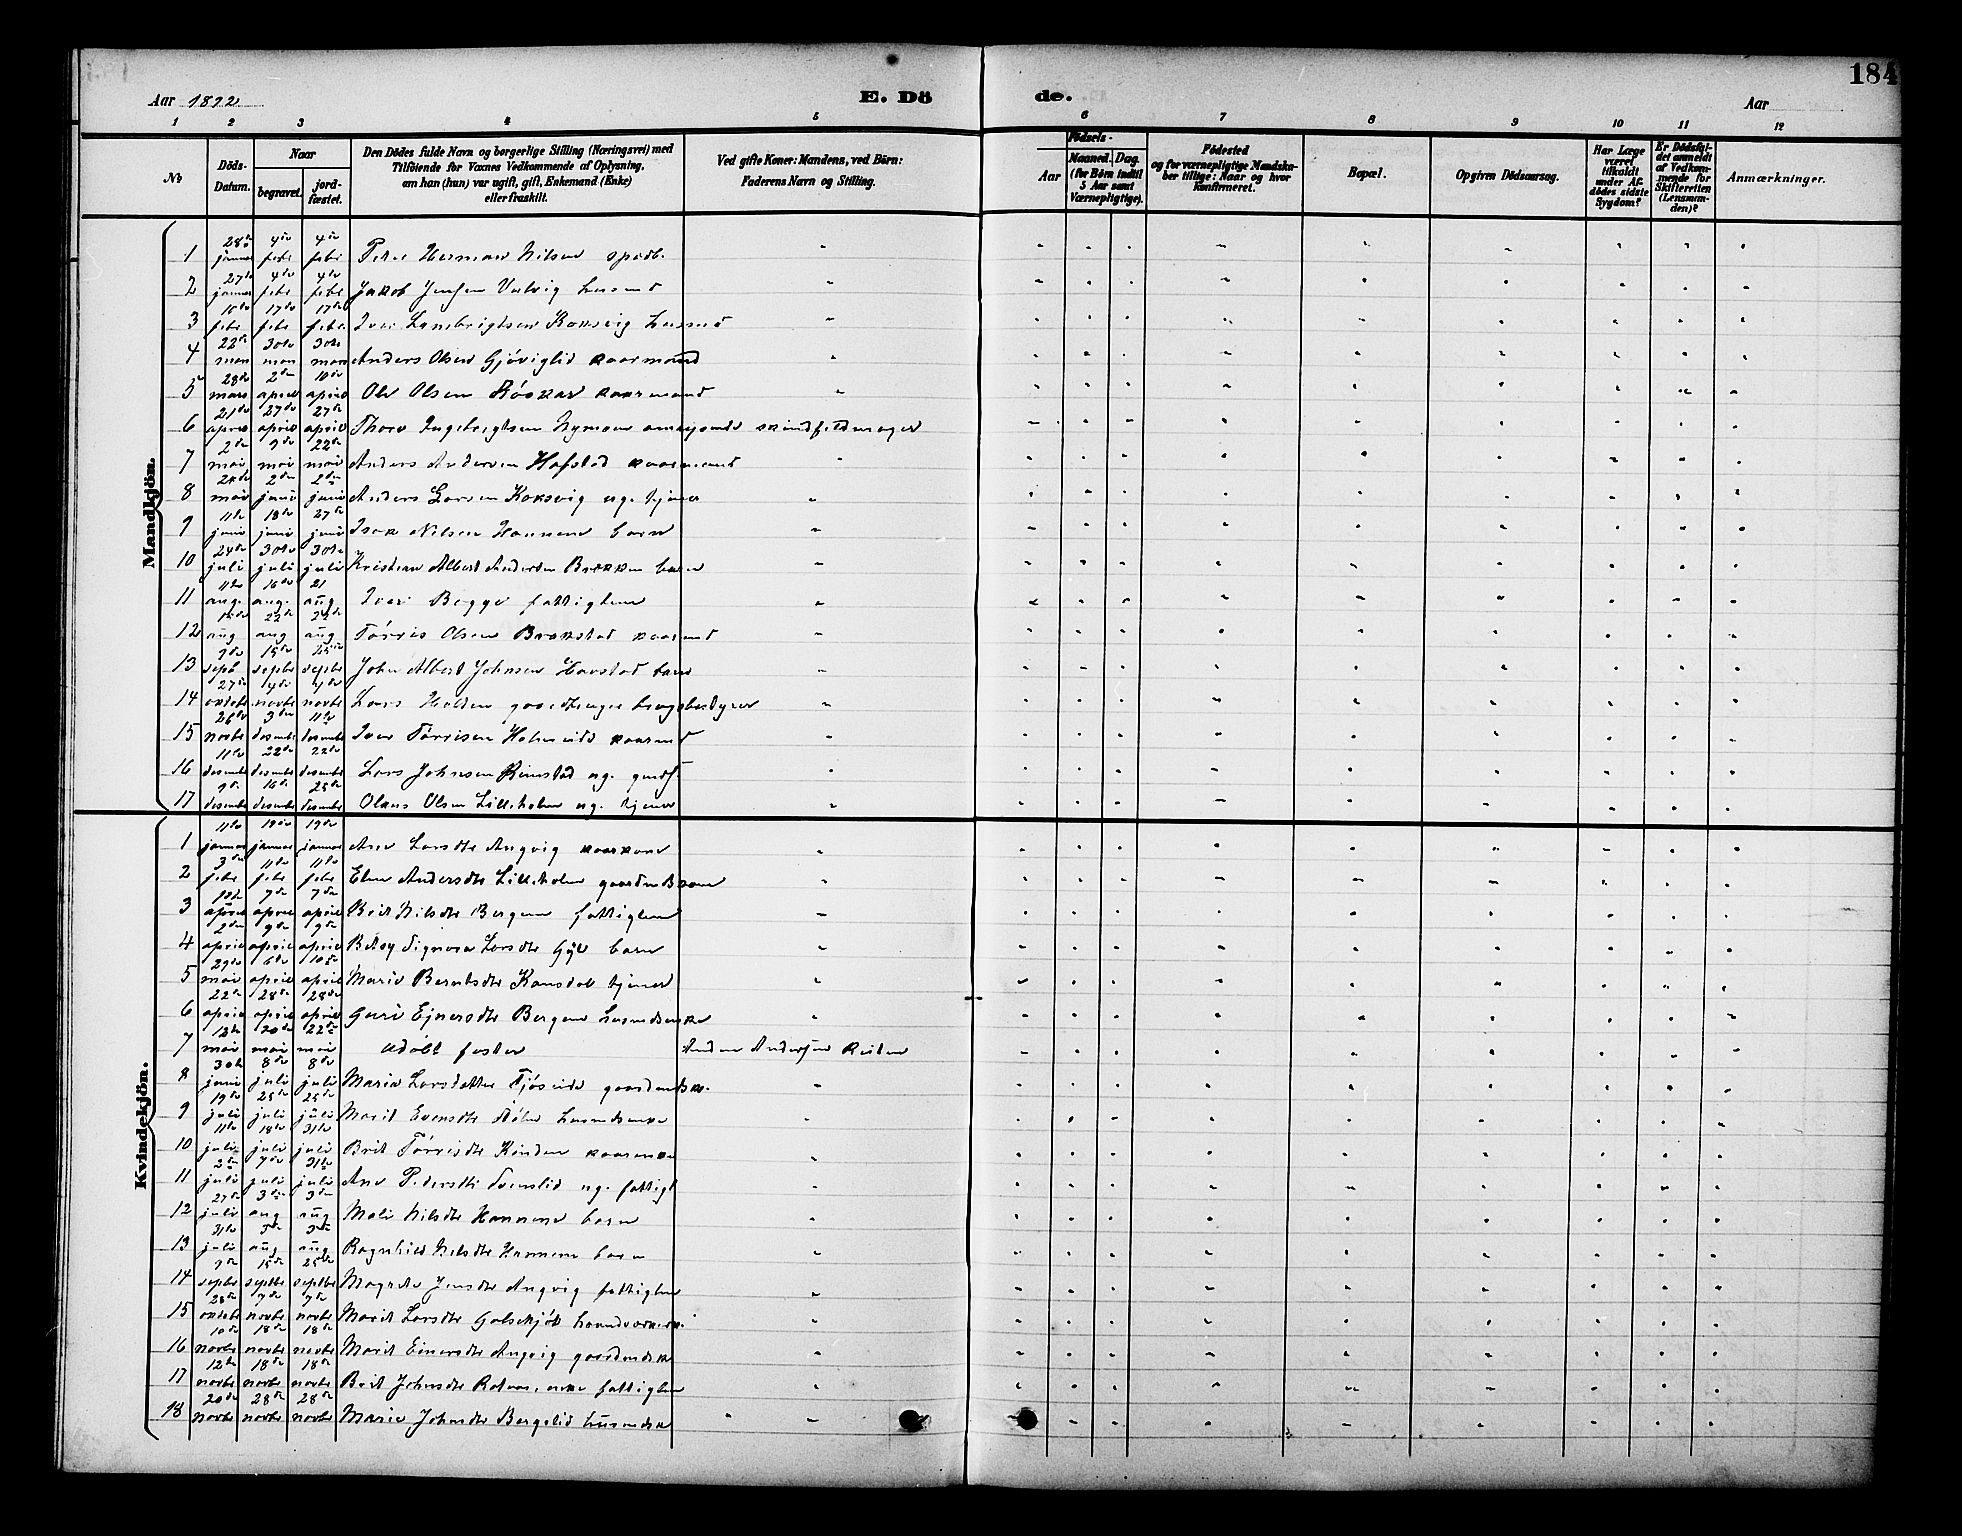 184
Aar 1892
E. Dö
de.
Aar
1 2 3 4 5 6 7 8 9 10 11 12
№
Döds-Datum.
Naar
begravet.
jord-fæstet.
Den Dödes fulde Navn og borgerlige Stilling (Næringsvei) med Tilföiende for Voxnes Vedkommende af Oplysning, om han (hun) var ugift, gift, Enkemand (Enke) eller fraskilt.
Ved gifte Koner: Mandens, ved Börn: Faderens Navn og Stilling.
Födsels-
Aar
Maaned. Dag.
(for Börn indtil 5 Aar samt Værnepligtige).
Födested og for værnepligtige Mandskaber tillige: Naar og hvor konfirmeret.
Bopæl.
Opgiven Dödsaarsag.
Har Læge været tilkaldt under Afdödes sidste Sygdom?
Er Dödsfaldet anmeldt af Vedkommende for Skifteretten (Lensmanden)?
Anmærkninger.
Mandkjön.
1 28de januar 4de febr 4de febr Peter Herman Nilsen spædb.
2 27de januar 4de febr 4de febr Jakob Jensen Valvig husmd
3 febr 17de febr 17de febr Iver Lambrigtsen Koksvig husmd
4 22de mars 30te mars 30te mars Anders Olsen Gjöviglid kaarmand
5 28de mars 2den april 10de april Ole Olsen Röskar kaarmand
6 21de april 27de april 27de april Thore Ingebrigtsen Nyman omreisende skindfeldmager
7 2den mai 9de mai 22de mai Anders Andersen Hafstad kaarmand
8 mai 2den juni 2den juni Anders Larsen Koksvig ug. tjener
9 11te juni 18de juni 27de juni Isak Nilsen Hannem barn
10 24de juli 30te juli 30te juli Kristian Albert Andersen Brekken barn
11 11te aug. 16de aug. 21 aug Iver Bogge fattiglem
12 aug 22de aug aug Törris Olsen Brakstad kaarmd
13 9de sept 15de septbr 25de septbr John Albert Johnsen Havstad barn
14 27de oktobr 4de novbr 4de novbr Lars Holden gaardbruger brugsbestyrer
15 26de novbr 3den desembr 11te desembr Iver Törrisen Holmeide kaarmd
16 11te desembr 22de desembr 22de desembr Lars Johnsen Rimstad ug. gmds.
17 9de desembr 16de desembr 25de desembr Olaus Olsen Lilleholm ug. tjener
Kvindekjön.
1 11te januar 19de januar 19de januar Ane Larsdtr Angvig kaarkone
2 3de febr 11te febr 11te febr Elen Andersdtr Lilleholm gaardmdskone
3 april 7de april 7de april Brit Nilsdtr Bergem fattiglem
4 2den april 9de april 9de april Betsy Signora Larsdtr Gyl barn
5 29de mai 6de april 10de april Marie Berntsdtr Kansdal tjener
6 22de april 28de april 28de april Guri Ejnersdtr Bergem husmdsenke
7 13te mai 20de mai 22de mai Udöbt foster Anders Andersen Reiten
8 30te juni 8de juli 8de juli Marie Larsdatter Tjöseide gaardmdsk.
9 19de juli 25de juli 25de juli Marit Evensdtr Böler husmdsenke
10 11te juli 18de juli 31te juli Brit Törrisdtr Kinden kaarenke
11 2den juli 7de juli 31te juli Ane Pedersdtr Svenslid ug. fattigl
12 27de juli 3de aug 3de aug Mali Nilsdtr Hannem barn
13 31te juli aug aug Ragnhild Nilsdtr Hannem barn
14 9de septbr 15de septbr 25de septbr Magrete Jensdtr Angvig fattiglem
15 28de oktobr 7de novbr 7de novbr Marit Larsdtr Golsetsjöl haandverkerk.
16 10de novbr 18de novbr 18de novbr Marit Einersdtr Angvig gaardmdsk
17 12te novbr 18de novbr 18de novbr Brit Johnsdtr Rotaas, enke fattiglem
18 20de novbr 28de novbr 28de novbr Marie Johnsdtr Bergslid husmdsk